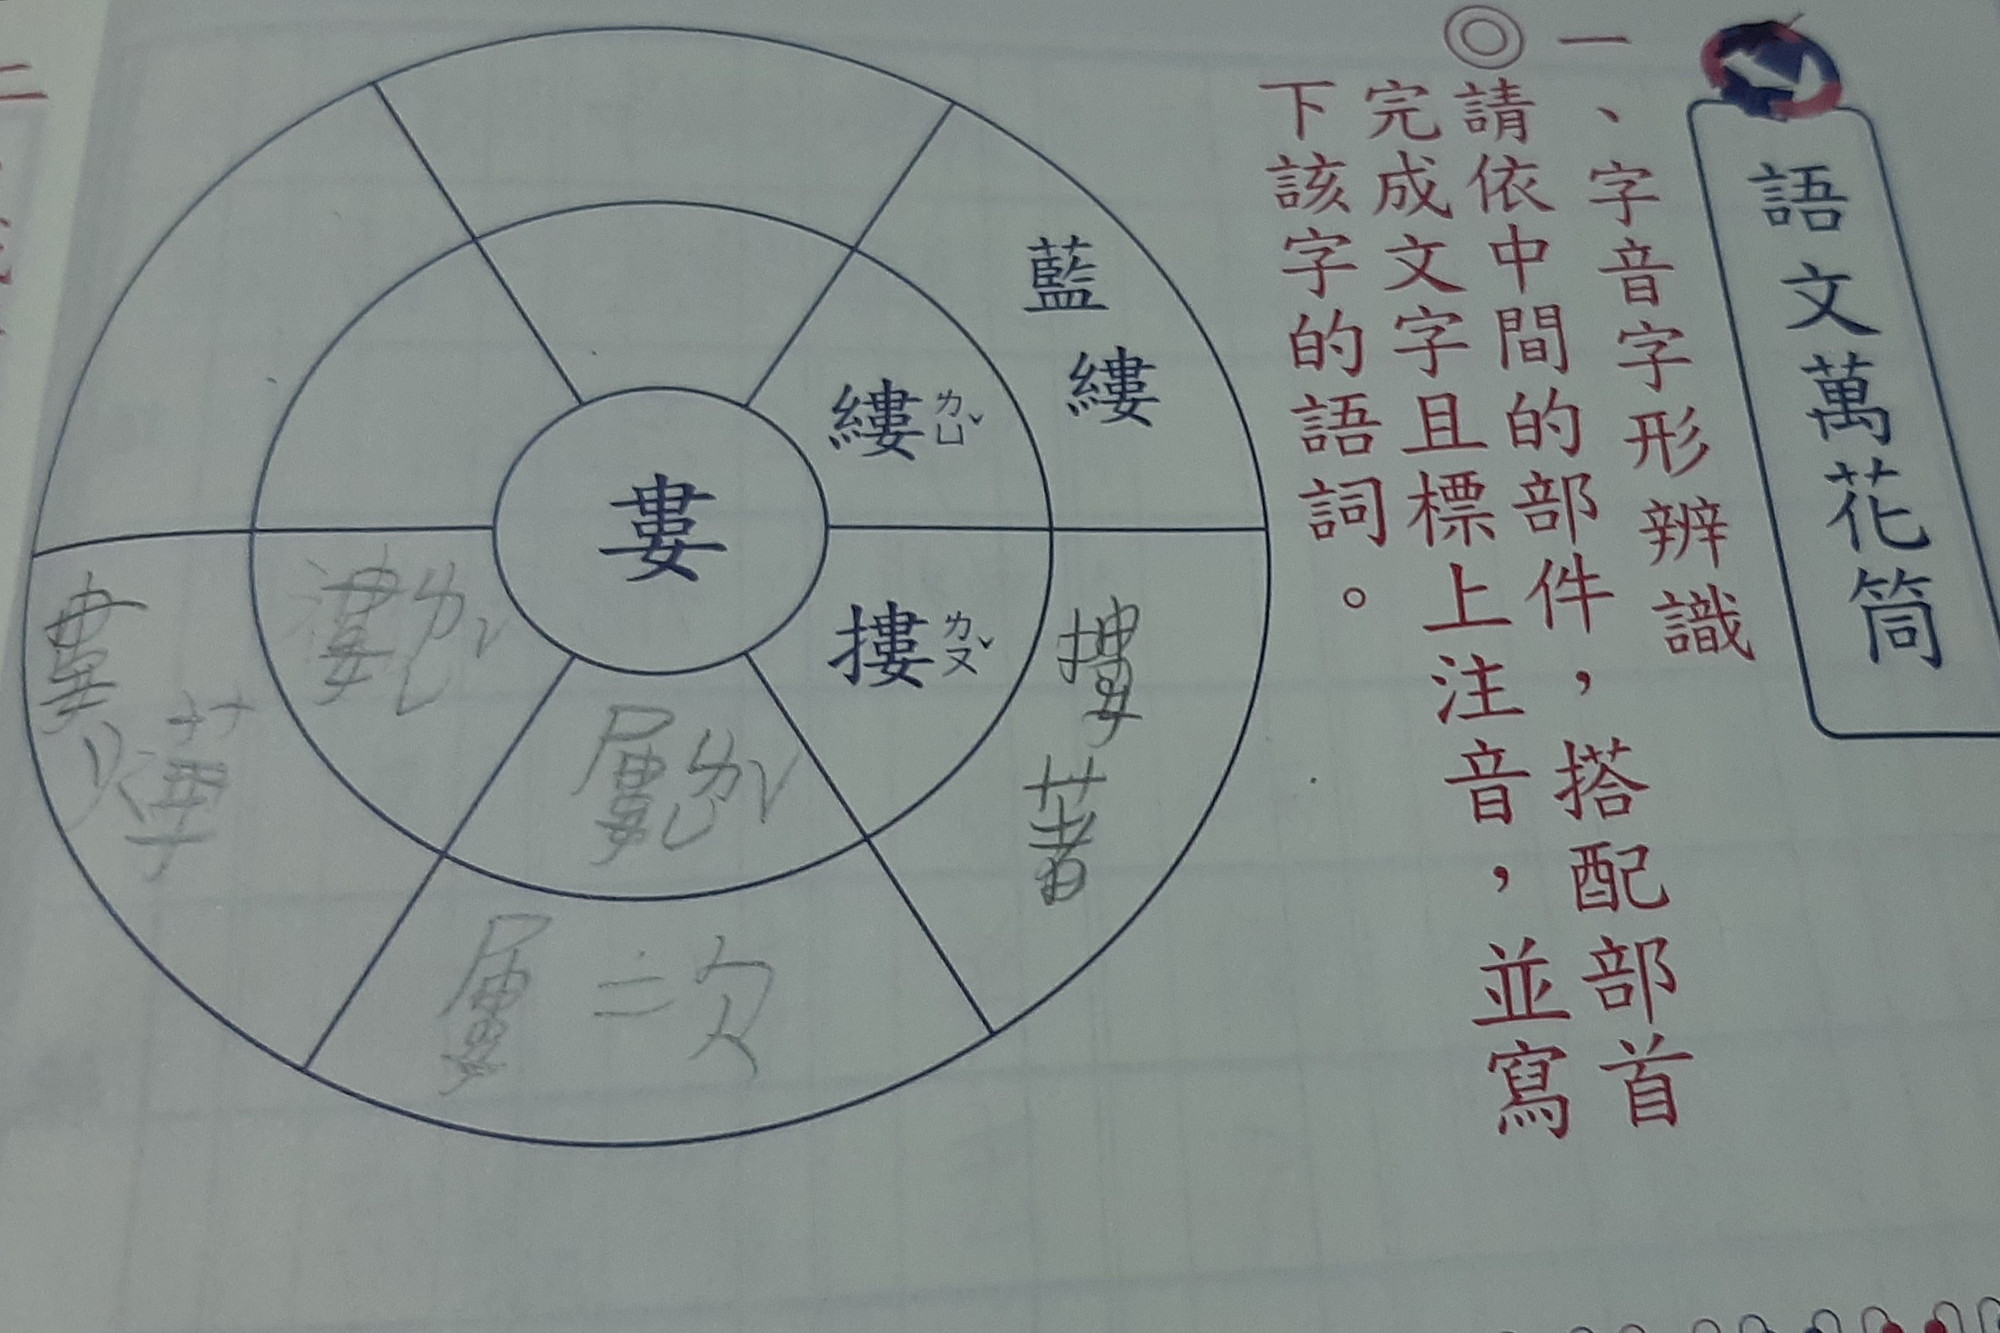 語文萬花筒
一、字音字形辨識
◎請依中間的部件，搭配部首
完成文字且標上注音，並寫
下該字的語詞。
藍縷
縷ㄌㄩˇ
摟ㄌㄡˇ
摟著
婁
屢ㄌㄩˇ
屢二次
二